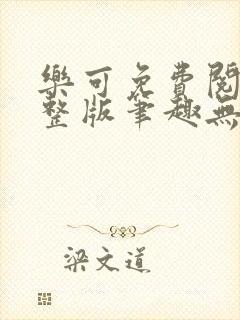 樂可免費閱
整版筆趣無
梁文道